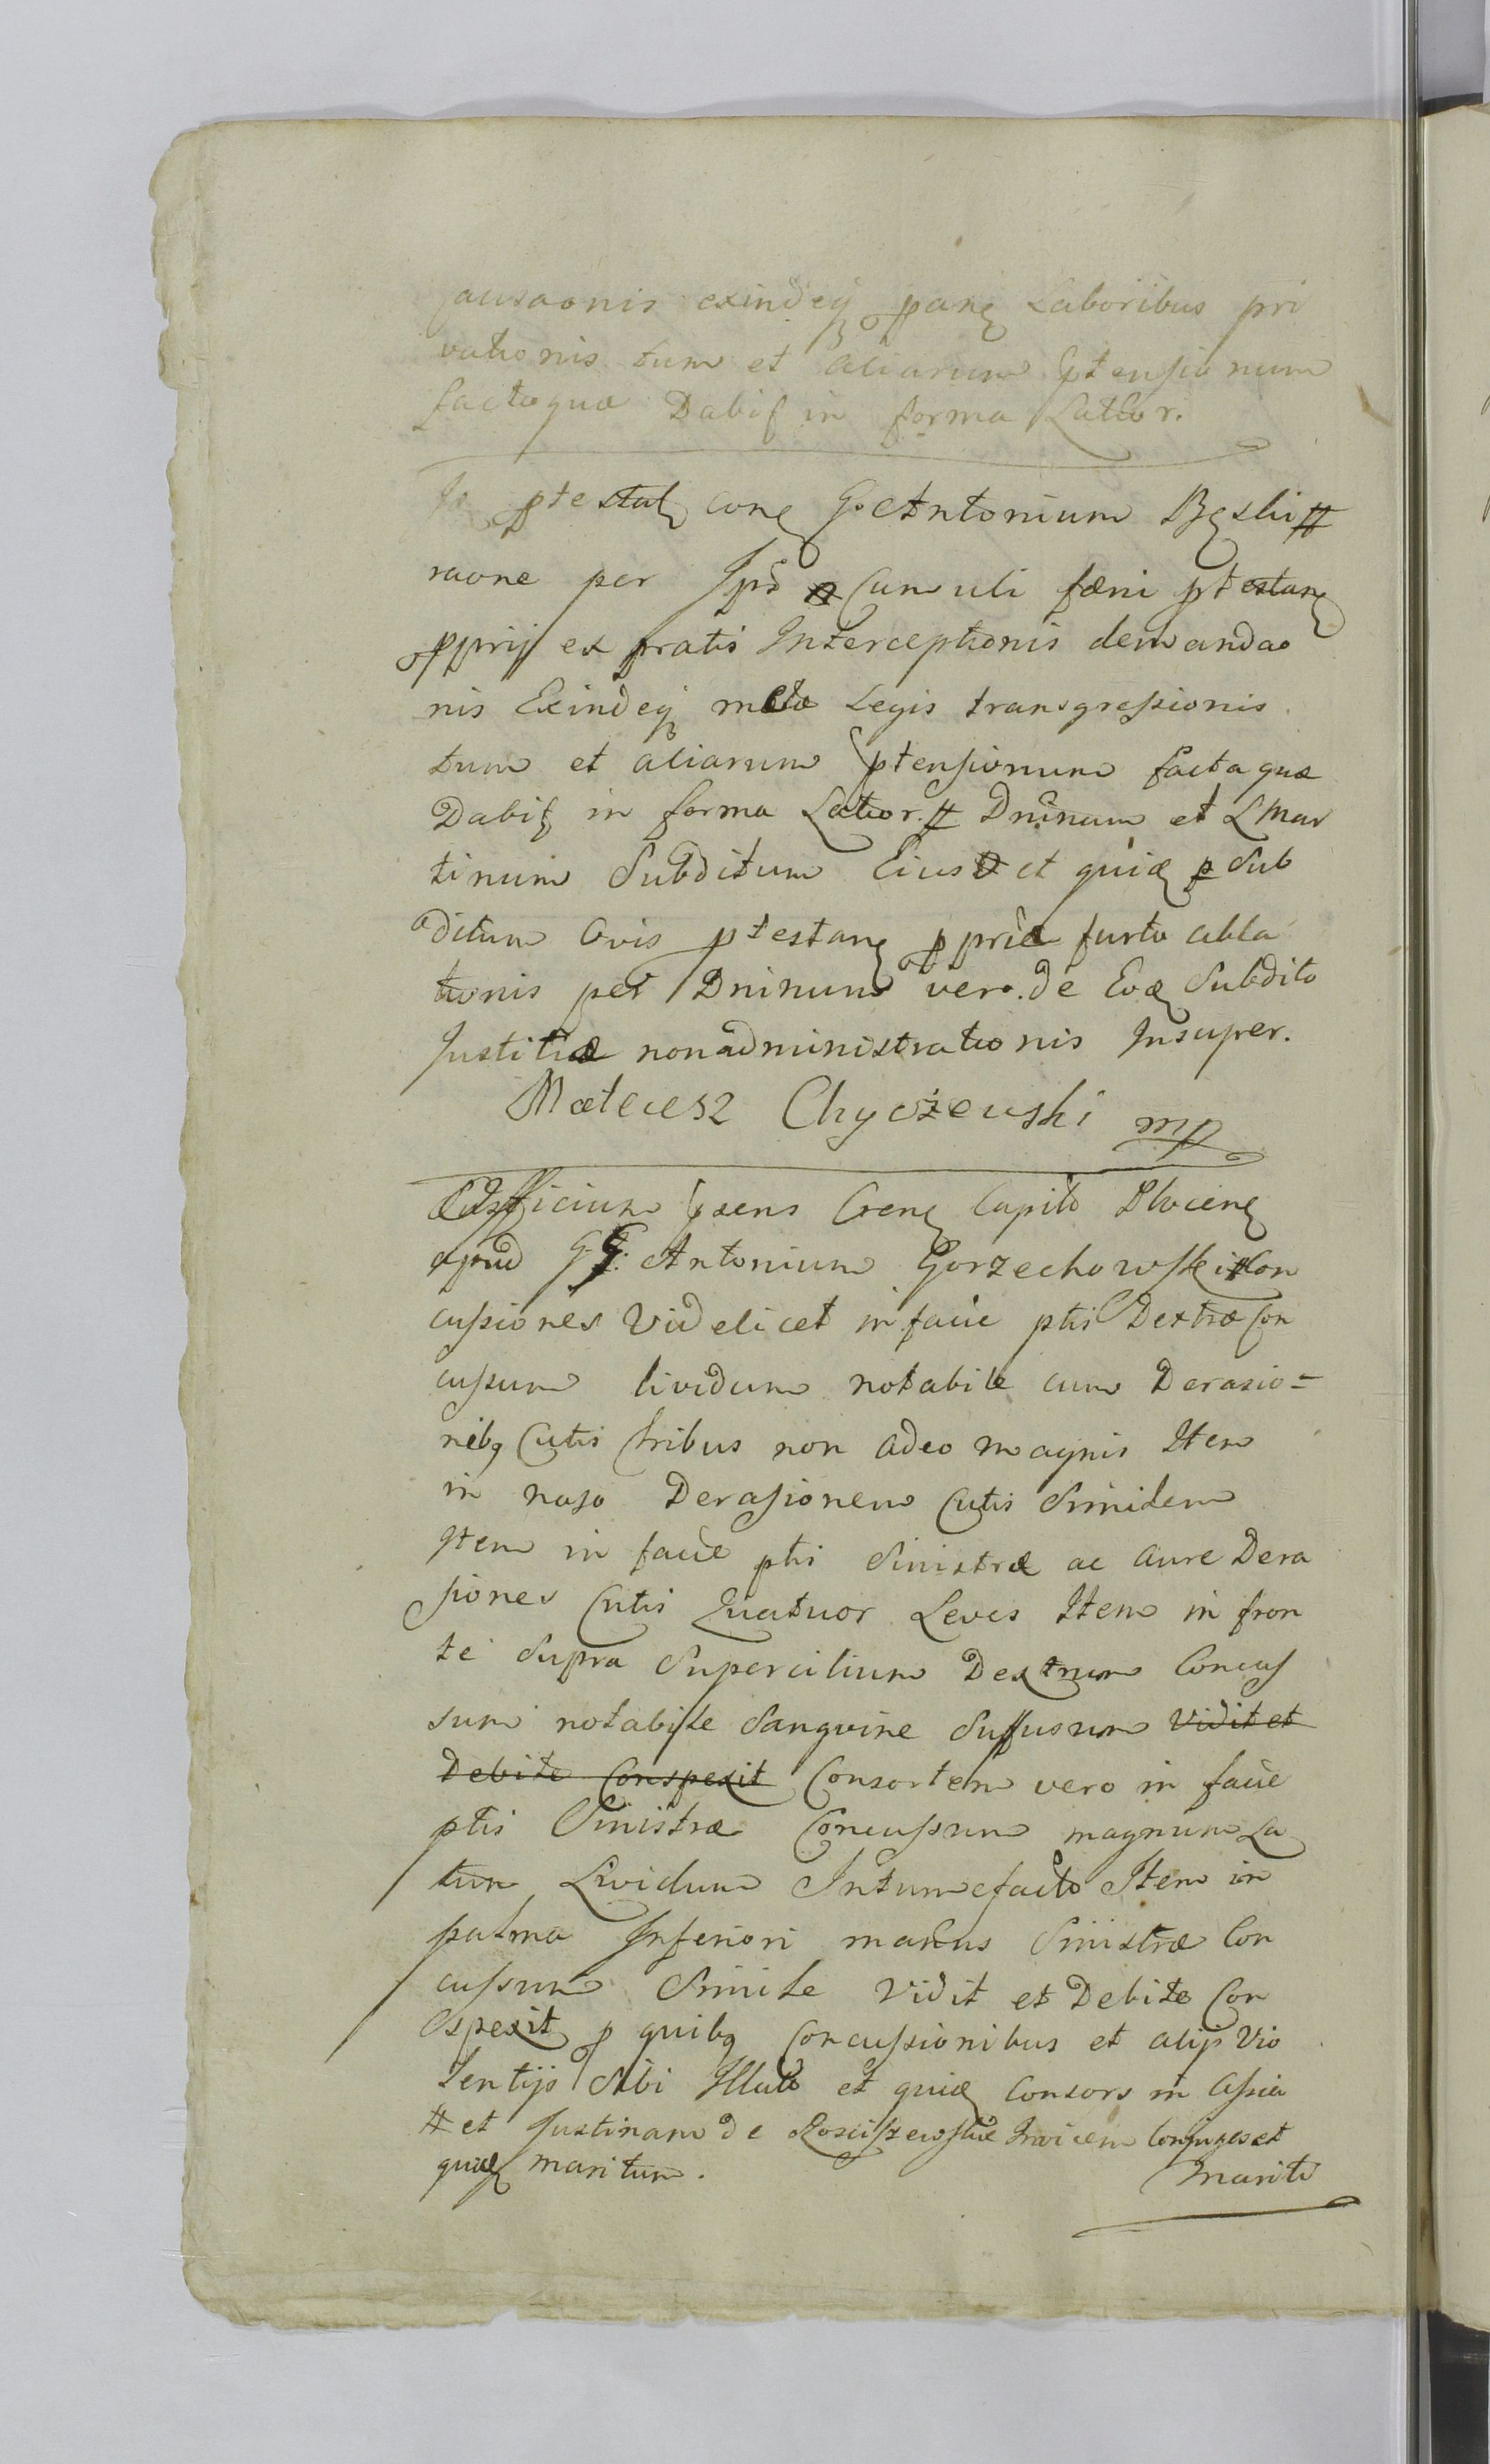 ausaonis exindeq parte Laboribus pri
vationis tum et aliarum ptensionum
factaque Dabit in forma Latior.
Is ptestat cone G. Antonium Bęski #
raone per Ipsū Cumuli fæni ptestane
pprij ex pratis Interceptionis demandao
nis Exindeq Legis transgressionis
tum et aliarum ptensionum facta quæ
Dabit in forma Latior. # Dninum et L Mar
tinum Subditum Eius et quiæ p Sub
ditum Ovis ptestane ppriæ furto abla
tionis per Dninum vero de Eoæ Subdito
Justitiæ nonadministrationis Insuper.
Mateusz Chyczewski mp
Officium psens Crene Capitl Plocene
apud GG. Antonium Gorzechowski # Con
cussiones Videlicet in facie ptis Dextræ Con
cussum lividum notabile cum Derasio=
nibq Cutis tribus non adeo magnis Item
in naso Derasionem Cutis Similem
Item in facie ptis Sinistræ ac aure Dera
siones Cutis Quatuor Leves Item in fron
te Supra Supercilium Dextrum Concus
sum notabile Sanguine Suffusum Vidit et
Debite Conspexit Consortem vero in facie
ptis Sinistræ Concussum magnum La
tum Lividum Intumefacto Item in
palma Inferiori manus Sinistræ Con
cussum Simile Vidit et Debite Con
spexit p quibq Concussionibus et alijs Vio
lentijs Sibi Illato et quiæ Consors in Assia
# et Justinam de Rosciszewskie Invicem Conjuges et
quiæ maritum. Mariti